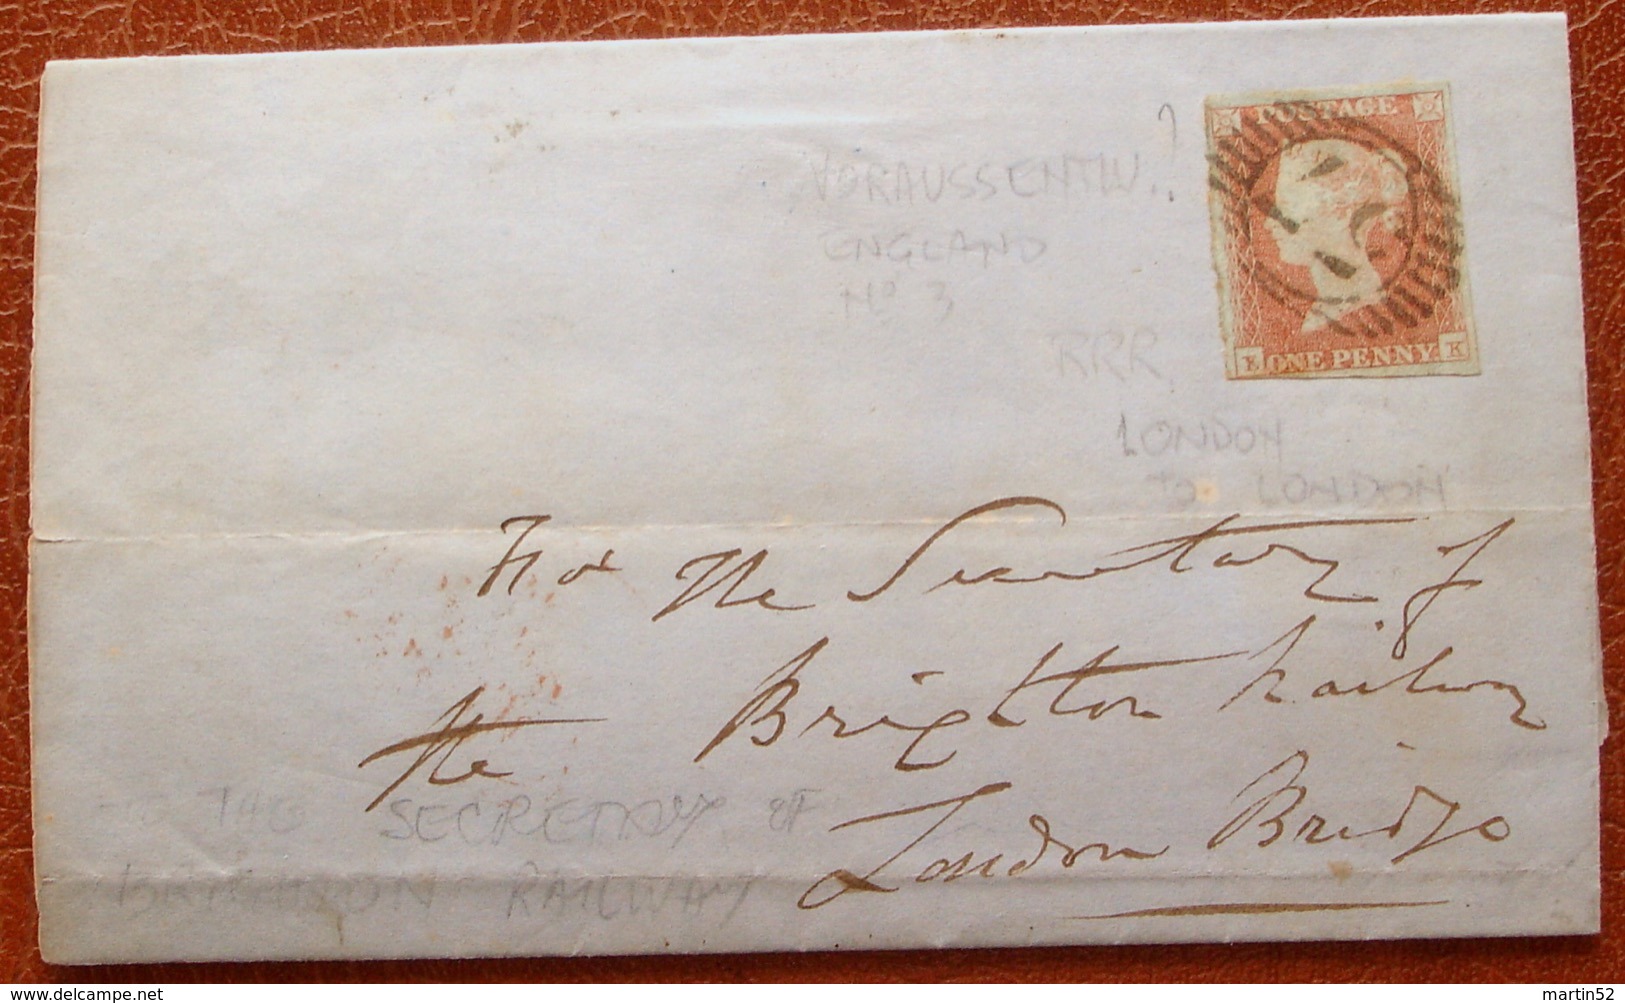 POSTAGE
ONE PENNY K
?
VORAUSSENTW..
ENGLAND
No 3
RRR
LONDON
TO LONDON
For the Secretary of
the Brighton Railway
London Bridge
TO THE SECRETARY OF
BRIGHTON RAILWAY
martin52